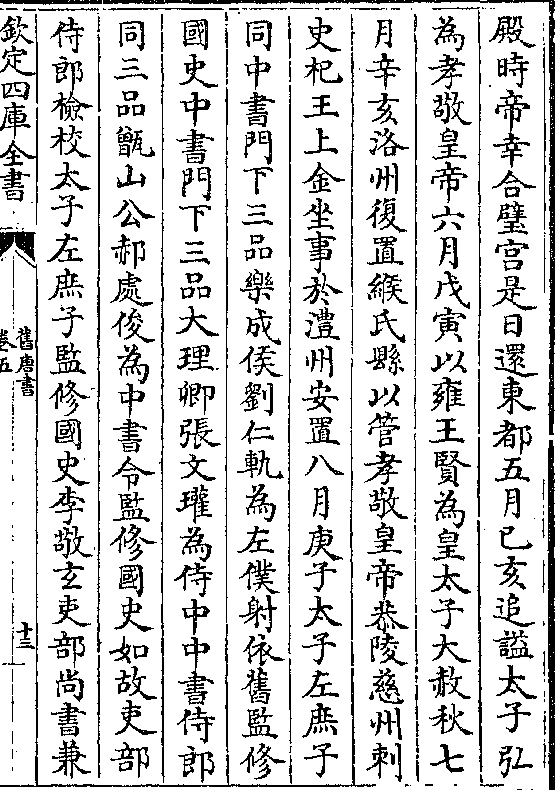 殿時帝幸合璧宫是日還東都五月己亥追謚太子弘
為孝敬皇帝六月戊寅以雍王賢為皇太子大赦秋七
月辛亥洛州復置緱氏縣以管孝敬皇帝恭陵慈州刺
史杞王上金坐事於澧州安置八月庚子太子左庶子
同中書門下三品樂成侯劉仁軌為左僕射依舊監修
國史中書門下三品大理卿張文瓘為侍中中書侍郎
同三品甑山公郝處俊為中書令監修國史如故吏部
侍郎檢校太子左庶子監修國史李敬玄吏部尚書兼
欽定四庫全書
舊唐書
卷五
十三